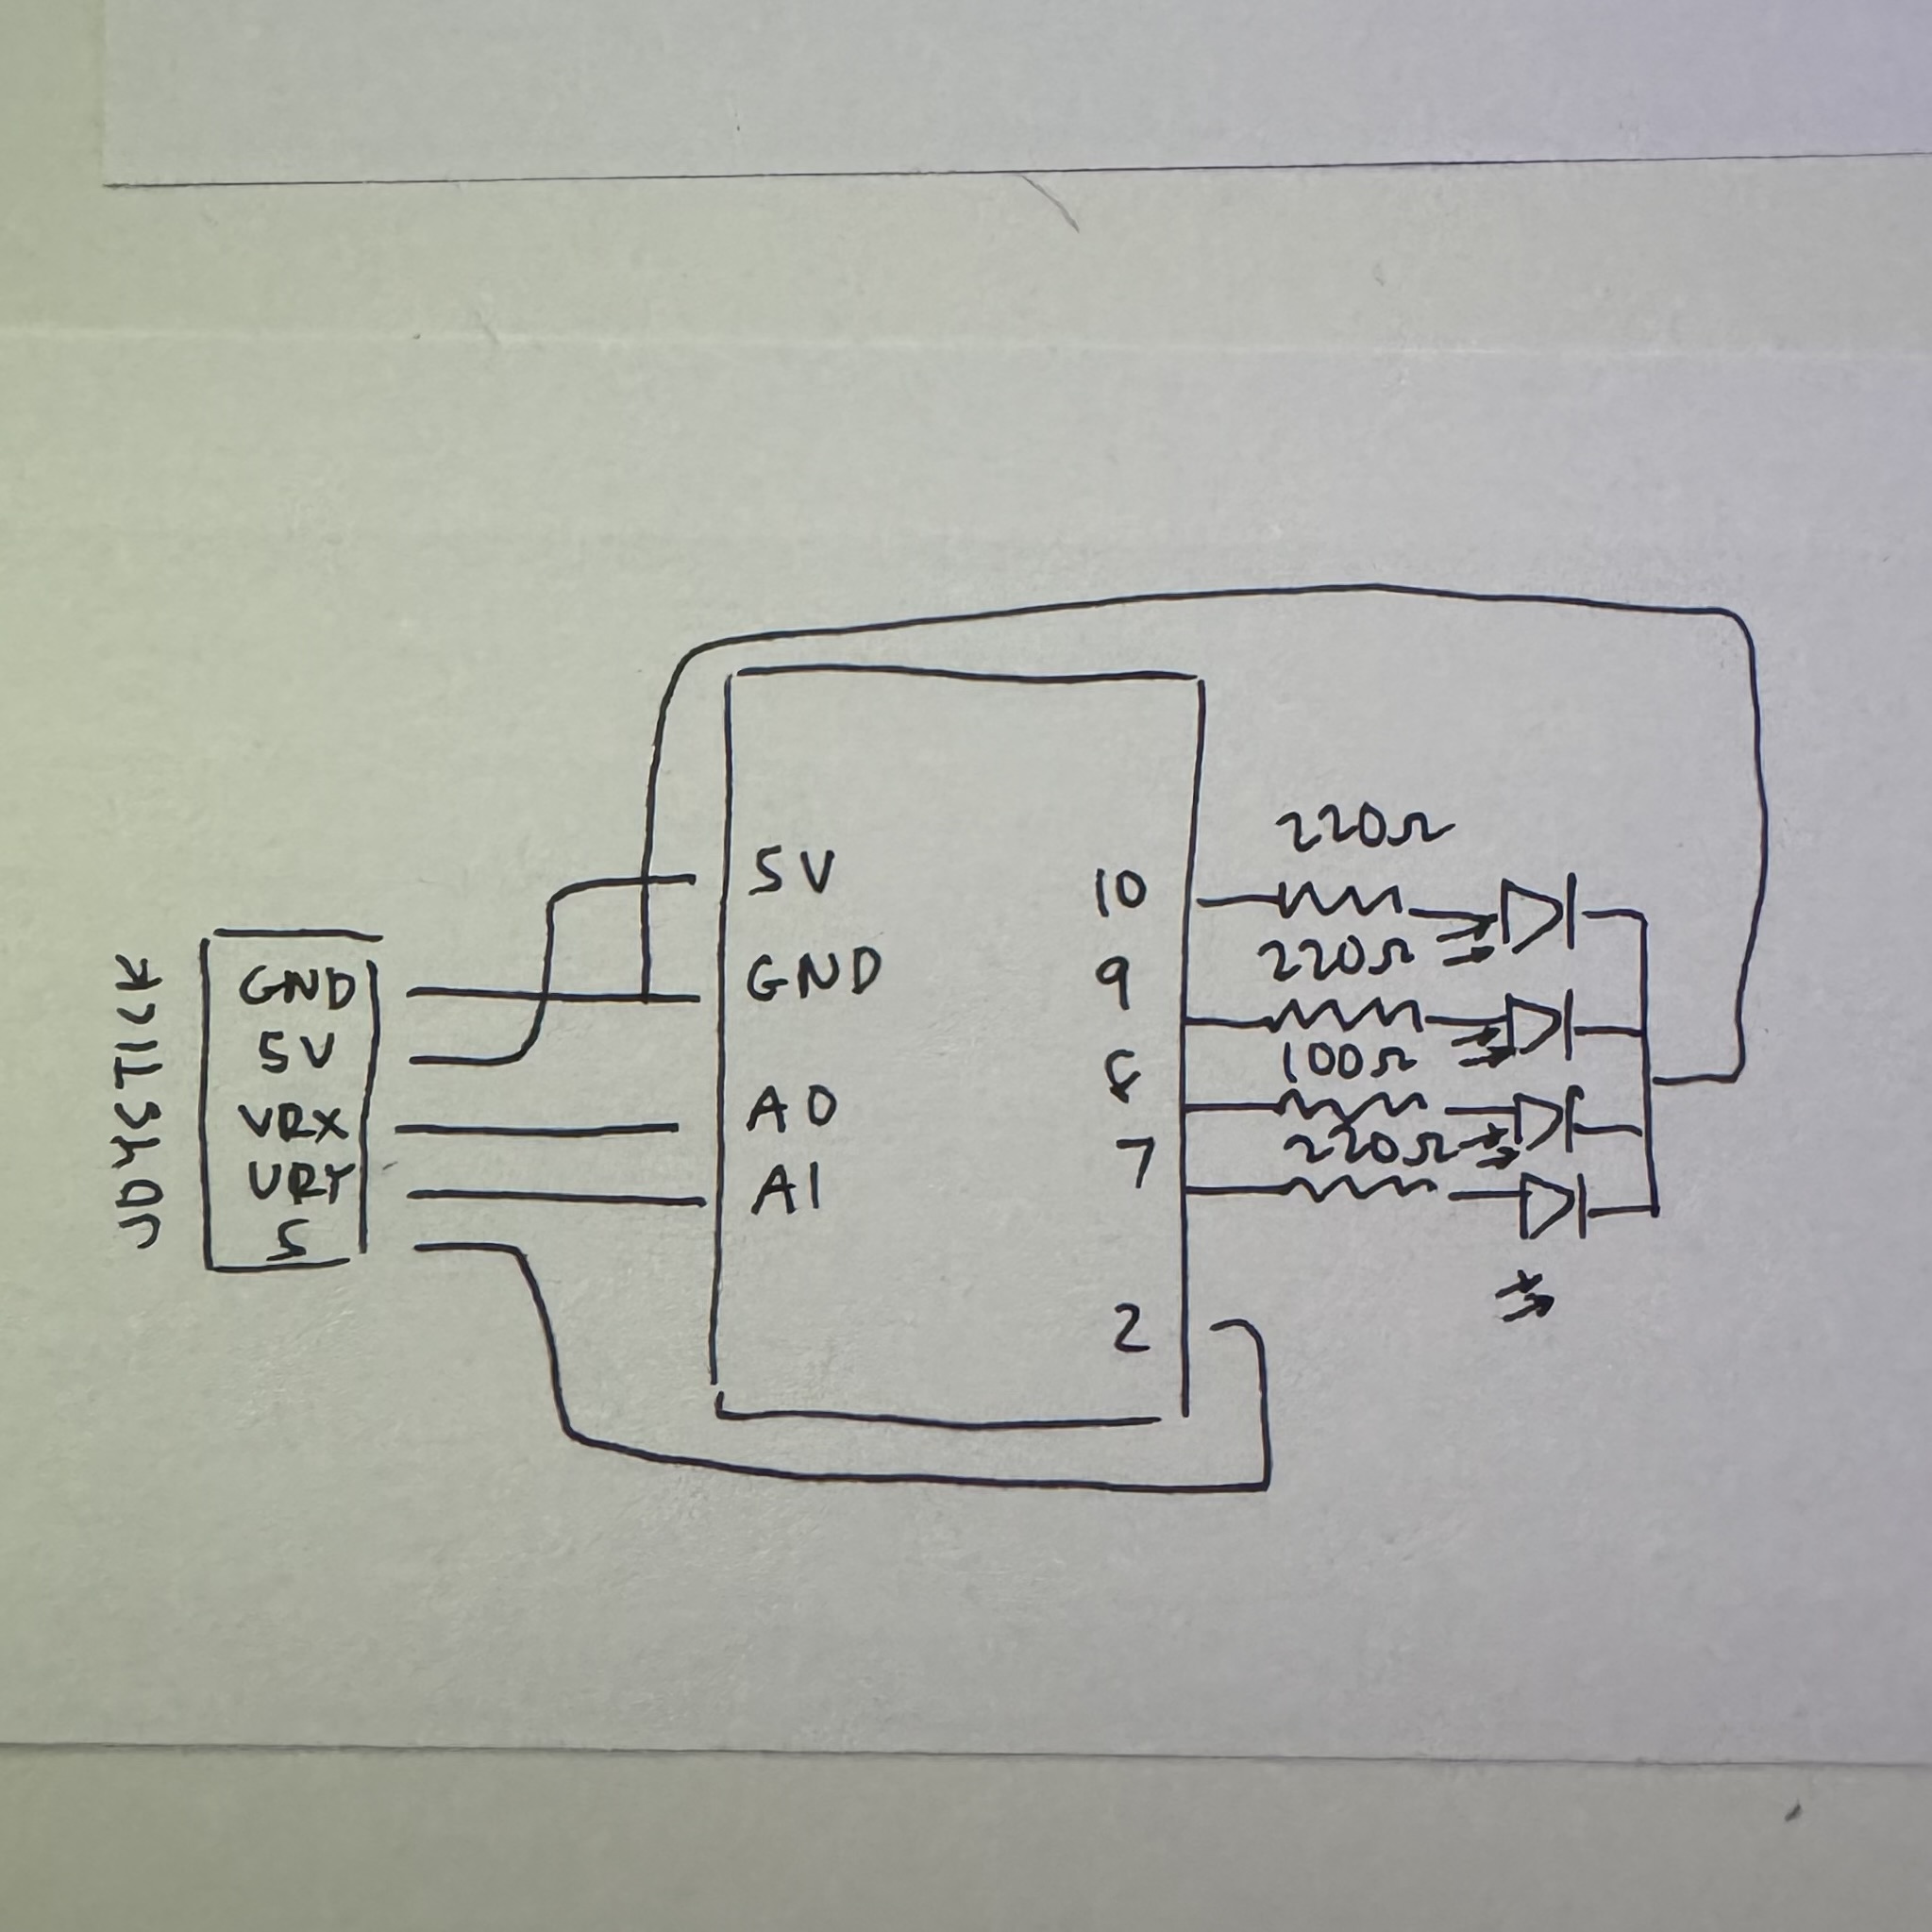 JOYSTICK
GND
5V
VRX
VRY
S
5V
GND
A0
A1
10
9
8
7
2
220Ω
220Ω
100Ω
220Ω